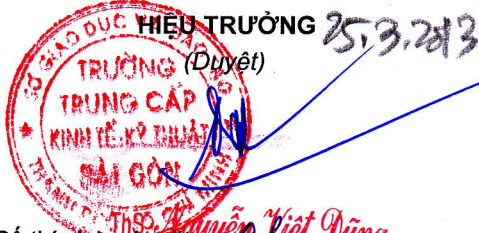 HIỆU TRƯỞNG 25.3.2013
(Duyệt)
SỞ GIÁO DỤC VÀ ĐÀO
TRƯỜNG
TRUNG CẤP
KINH TẾ-KỸ THUẬT
SÀI GÒN
ThS. Nguyễn Việt Dũng